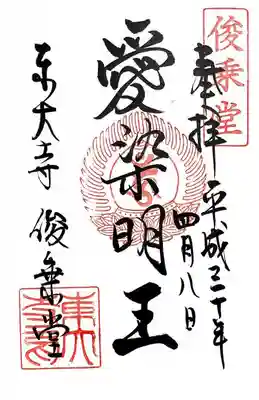 俊乗堂
奉拝
平成三十年
四月八日
愛染明王
東大寺
俊乗堂